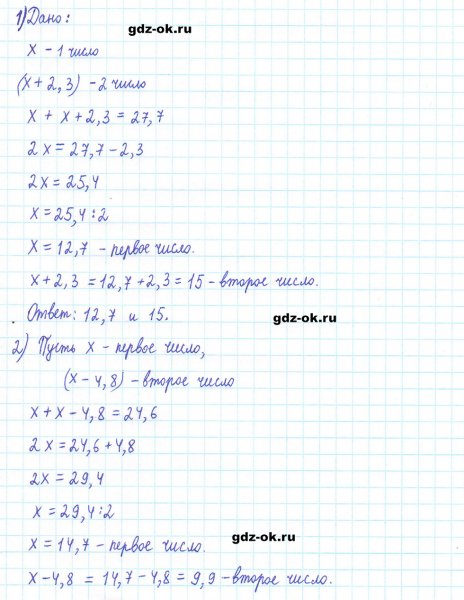 1) Дано:
gdz-ok.ru
x - 1 число
(x + 2,3) - 2 число
x + x + 2,3 = 27,7
2x = 27,7 - 2,3
2x = 25,4
x = 25,4 : 2
x = 12,7 - первое число.
x + 2,3 = 12,7 + 2,3 = 15 - второе число.
Ответ: 12,7 и 15.
gdz-ok.ru
2) Пусть x - первое число,
(x - 4,8) - второе число
x + x - 4,8 = 24,6
2x = 24,6 + 4,8
2x = 29,4
x = 29,4 : 2
gdz-ok.ru
x = 14,7 - первое число.
x - 4,8 = 14,7 - 4,8 = 9,9 - второе число.